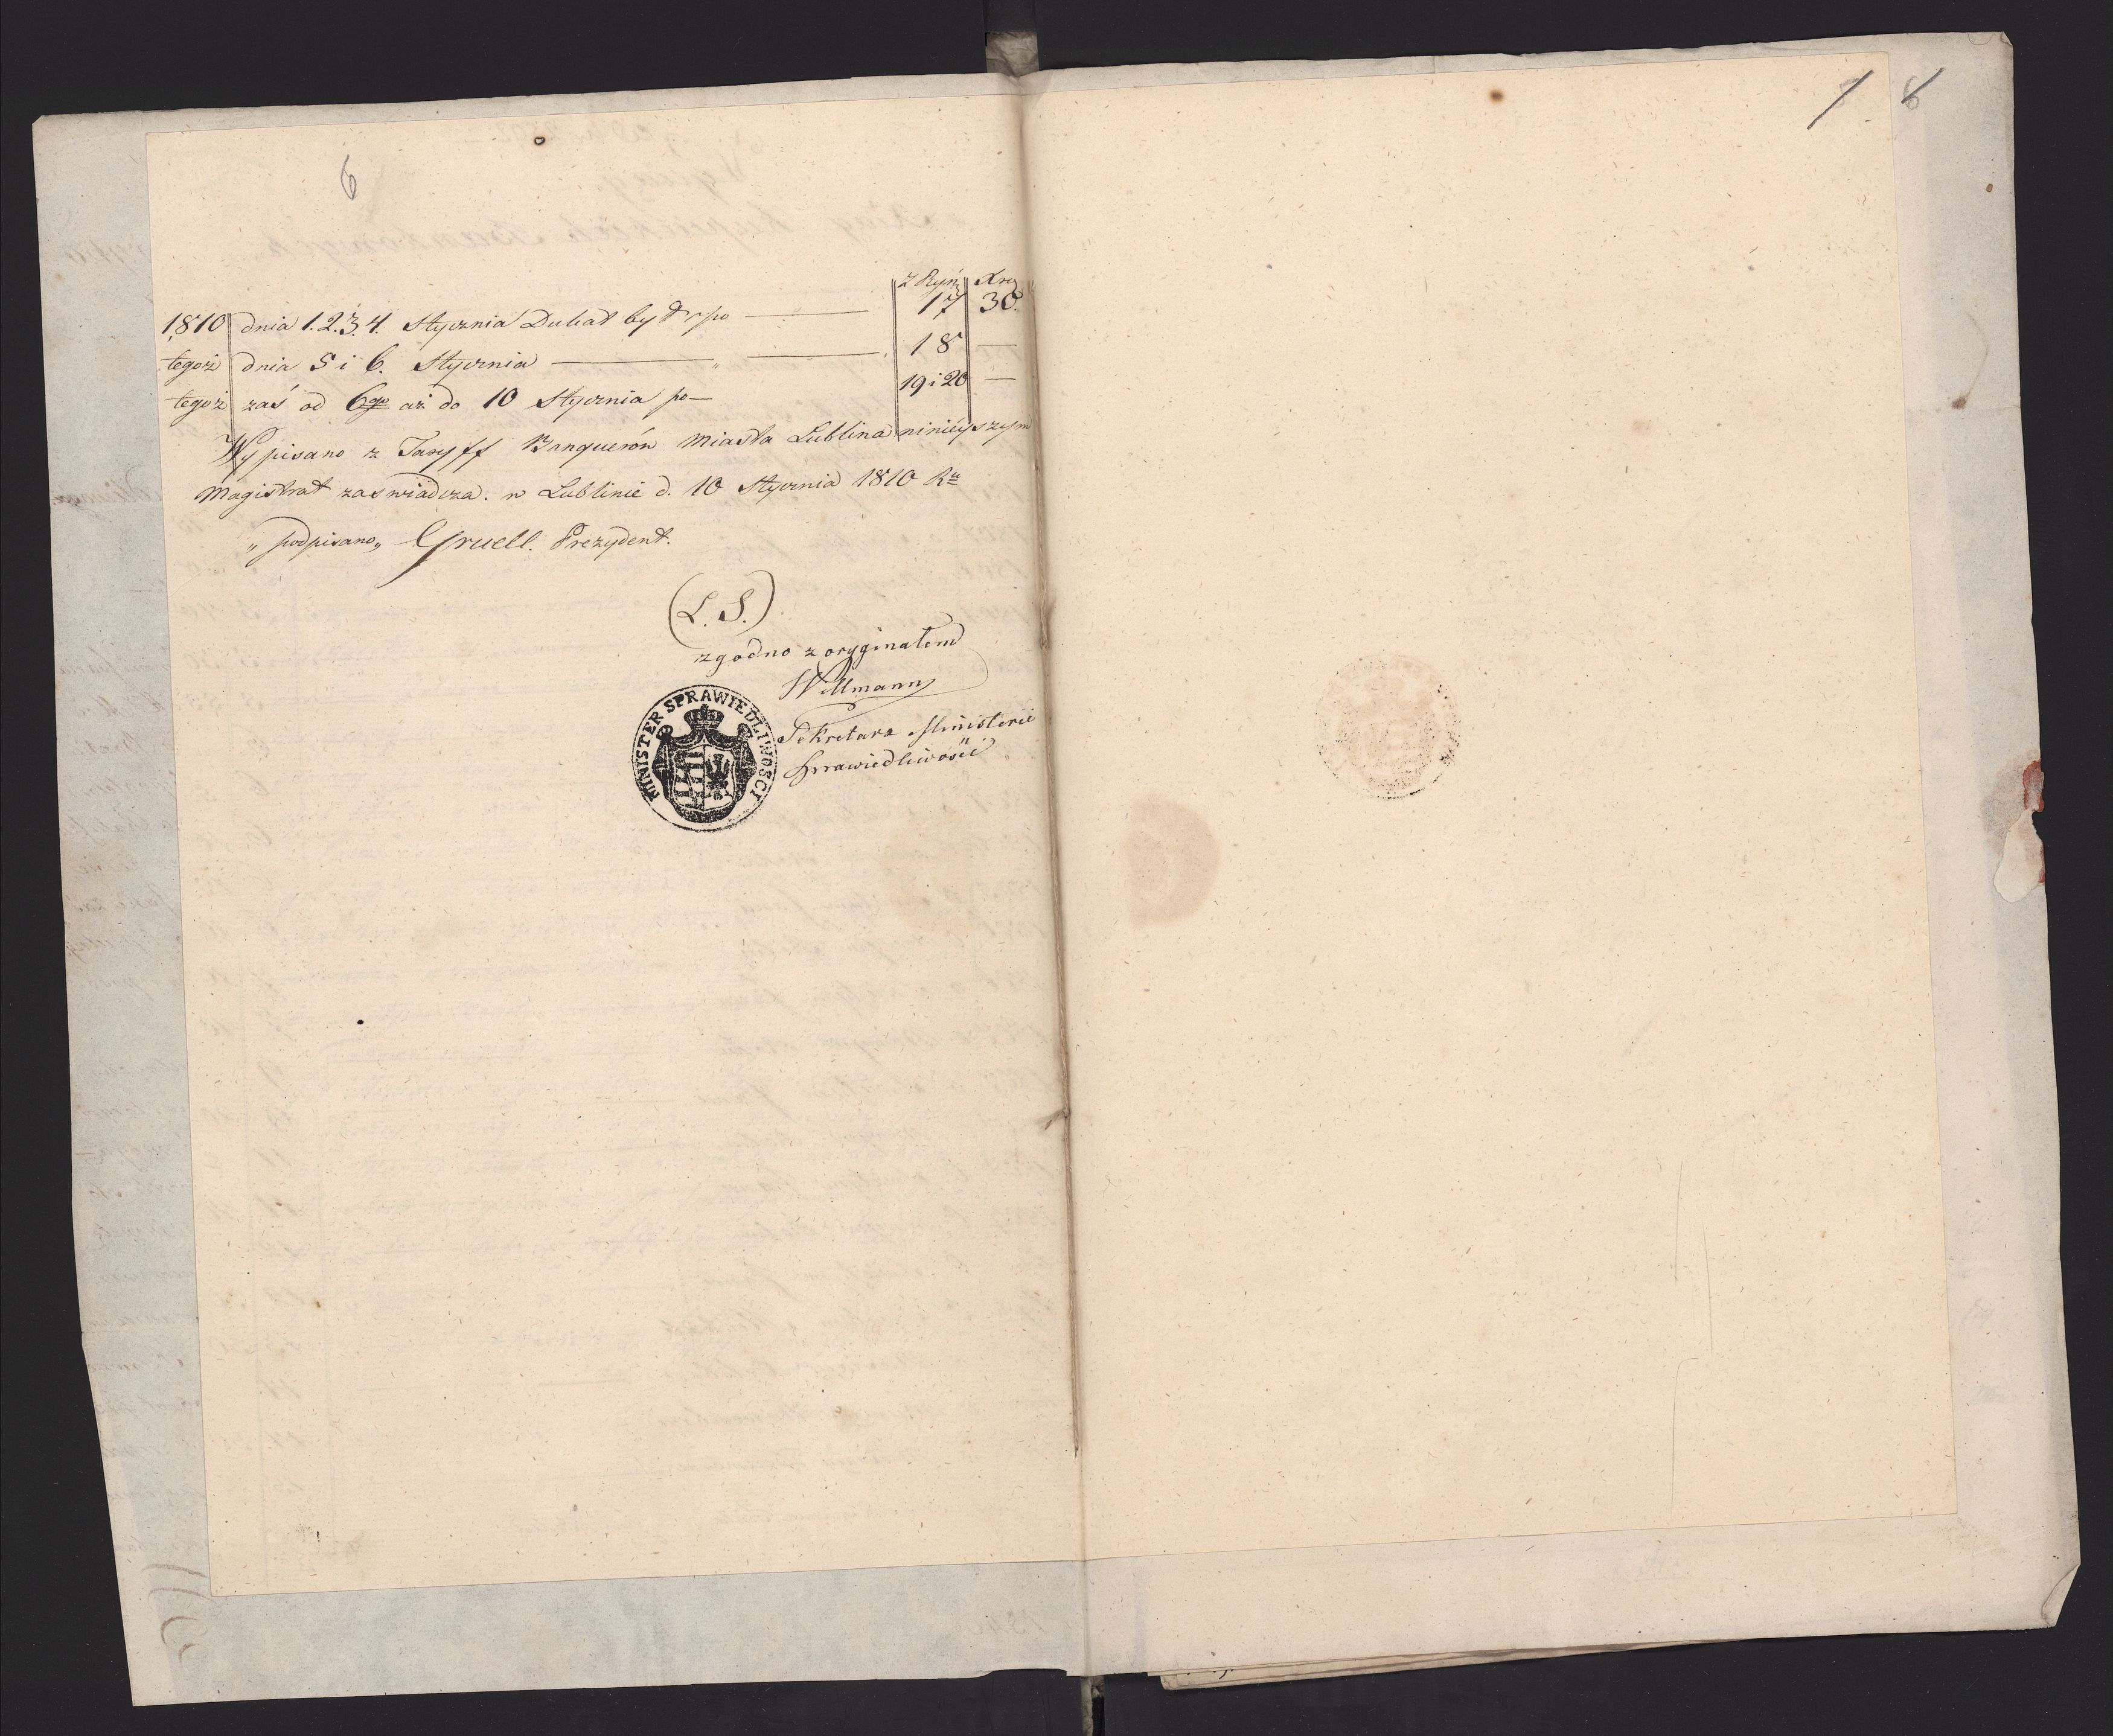 6
z Ryń Xre
1810 dnia 1. 2. 3. 4. Stycznia Dukat by po 17 30.
tegoż dnia 5 i 6. Stycznia 18 —
tegoż zaś od 6go aż do 10 Stycznia po— 19 i 20 —
Wypisano z Taryff Banquerów Miasta Lublina ninieyszym
Magistrat zaswiadcza. w Lublinie d. 10 Stycznia 1810 Ru
„podpisano„ Gruell. Prezydent.
(L. S.)
zgodno z oryginałem
Willmann
Sekretarz Ministerii
Sprawiedliwości
MINISTER SPRAWIEDLIWOSCI